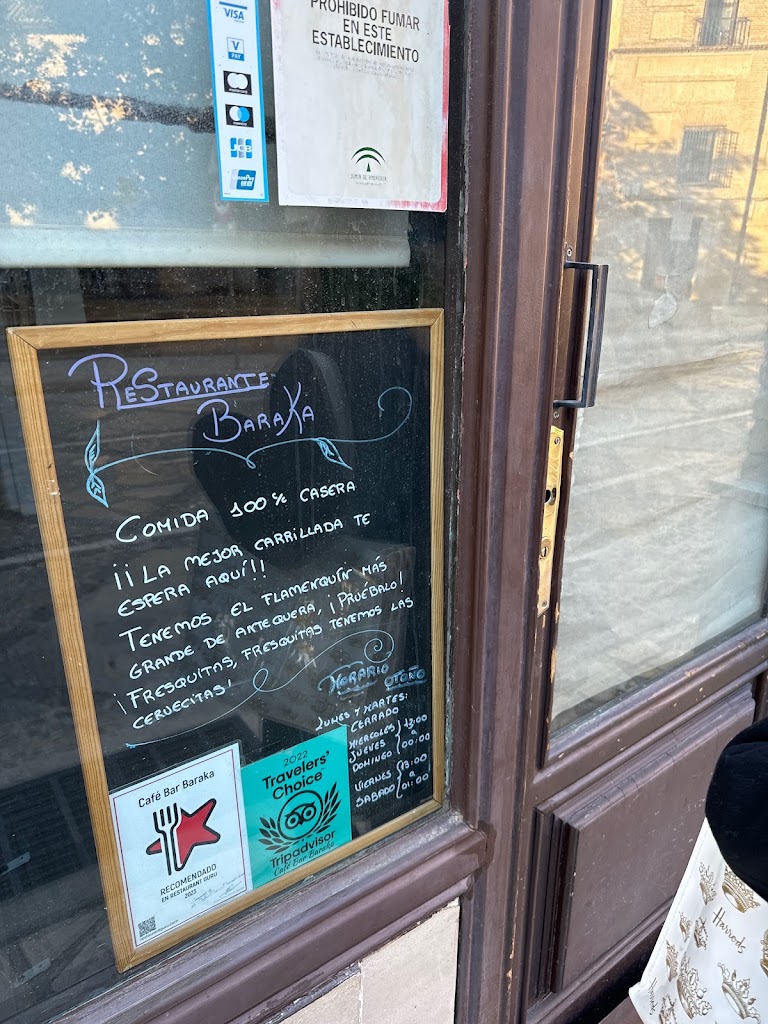 VISA
V
PAY
PROHIBIDO FUMAR
EN ESTE
ESTABLECIMIENTO
JCB
JUNTA DE ANDALUCIA
RESTAURANTE
BARAKA
COMIDA 100% CASERA
¡¡LA MEJOR CARRILLADA TE
ESPERA AQUÍ!!
TENEMOS EL FLAMENQUÍN MÁS
GRANDE DE ANTEQUERA, ¡PRUÉBALO!
¡FRESQUITAS, FRESQUITAS TENEMOS LAS
CERVECITAS!
HORARIO
OTOÑO
LUNES Y MARTES:
CERRADO
MIERCOLES
JUEVES
DOMINGO
a
00:00
VIERNES
SABADO
a
01:00
Café Bar Baraka
RECOMENDADO
EN RESTAURANT GURU
2023
2022
Travelers'
Choice
Tripadvisor
Café Bar Baraka
Harrods
Harrods